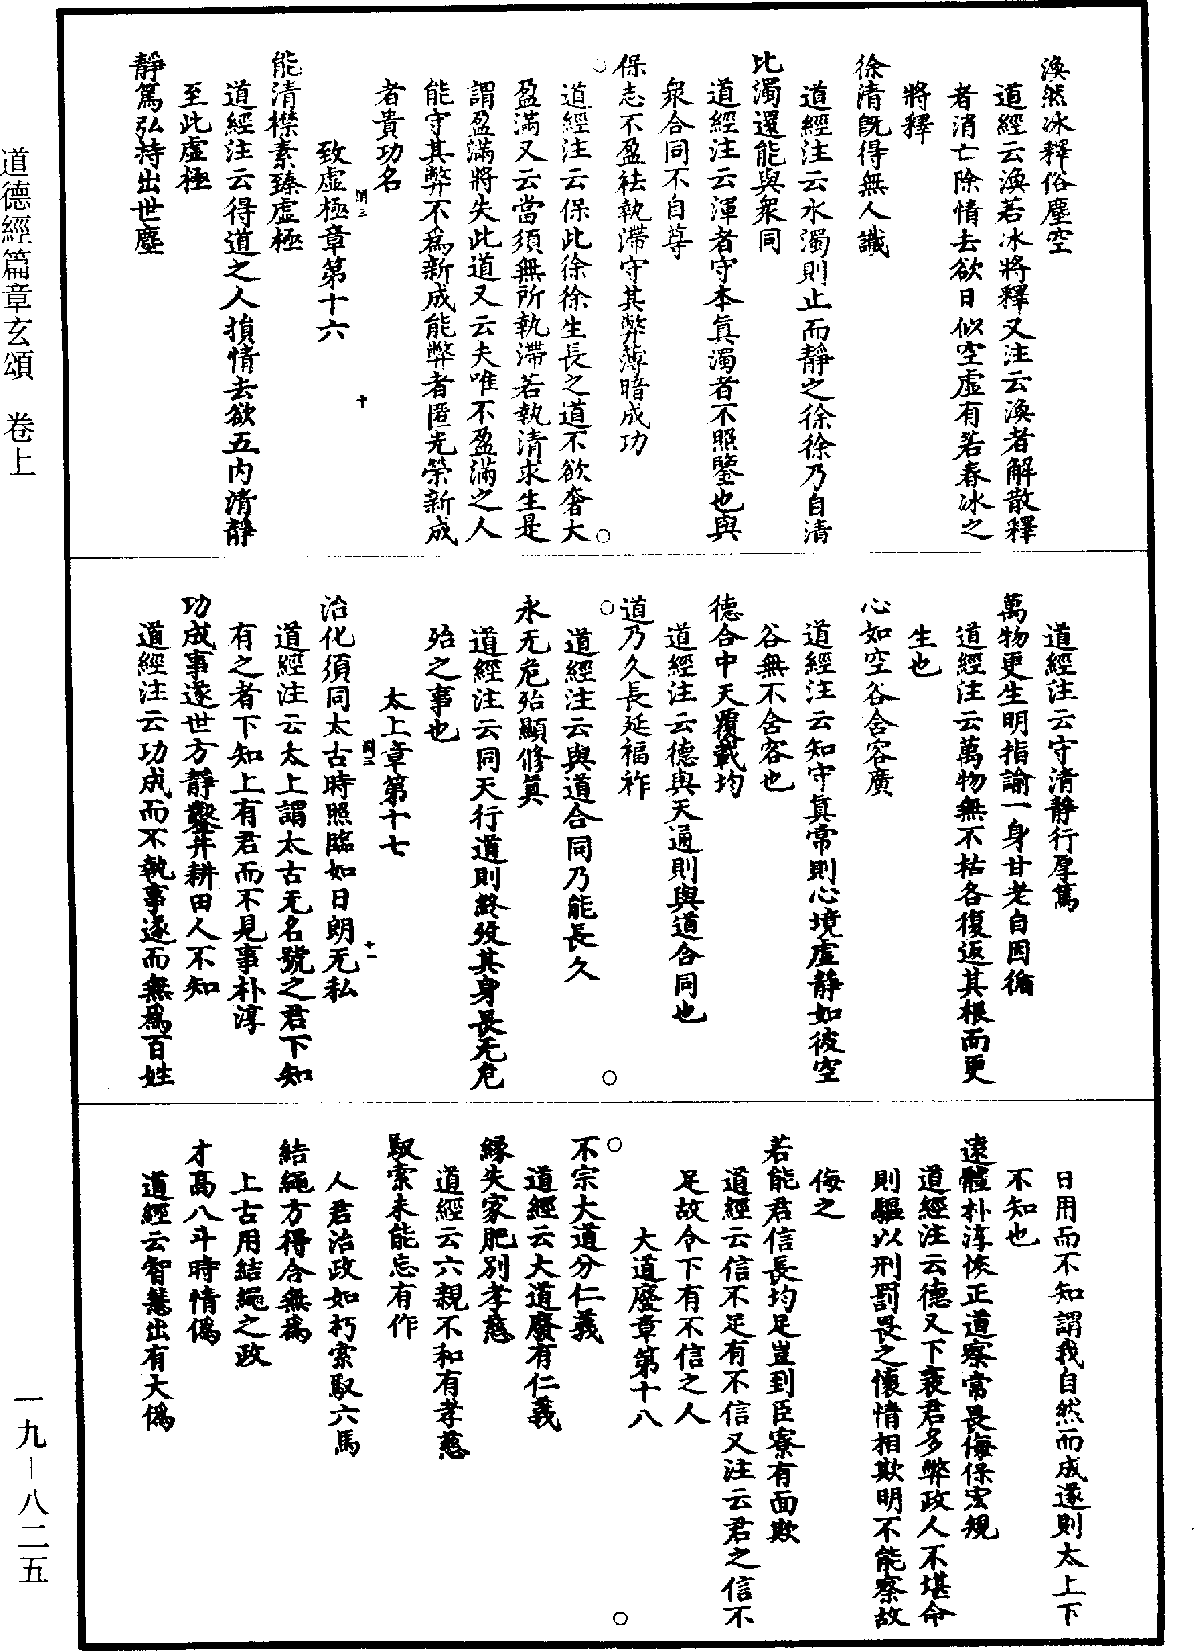 渙然冰釋俗塵空
道經云渙若冰將釋又注云渙者解散釋
者消亡除情去欲日似空虛有若春冰之
將釋
徐清旣得無人識
道經注云水濁則止而靜之徐徐乃自清
比濁還能與衆同
道經注云渾者守本眞濁者不照鑒也與
衆合同不自尊
保志不盈袪執滯守其弊薄暗成功
道經注云保此徐徐生長之道不欲奢大
盈滿又云當須無所執滯若執清求生是
謂盈滿將失此道又云夫唯不盈滿之人
能守其弊不爲新成能弊者匿光榮新成
者貴功名
致虛極章第十六
十
能清襟素臻虛極
道經注云得道之人損情去欲五內清靜
至此虛極
靜篤弘持出世塵
道經注云守清靜行厚篤
萬物更生明指諭一身甘老自因循
道經注云萬物無不枯各復返其根而更
生也
心如空谷含容廣
道經注云知守眞常則心境虛靜如彼空
谷無不含容也
德合中天覆載均
道經注云德與天通則與道合同也
道乃久長延福祚
道經注云與道合同乃能長久
永无危殆顯修眞
道經注云同天行道則終歿其身長无危
殆之事也
太上章第十七
十一
治化須同太古時照臨如日朗无私
道經注云太上謂太古无名號之君下知
有之者下知上有君而不見事朴淳
功成事遂世方靜鑿井耕田人不知
道經注云功成而不執事遂而無爲百姓
日用而不知謂我自然而成遂則太上下
不知也
遠體朴淳恢正道察常畏侮保宏規
道經注云德又下衰君多弊政人不堪命
則驅以刑罰畏之懷情相欺明不能察故
侮之
若能君信長均足豈到臣寮有面欺
道經云信不足有不信又注云君之信不
足故令下有不信之人
大道廢章第十八
不宗大道分仁義
道經云大道廢有仁義
緣失家肥別孝慈
道經云六親不和有孝慈
馭索未能忘有作
人君治政如朽索馭六馬
結繩方得合無爲
上古用結繩之政
才高八斗時情僞
道經云智慧出有大僞
道德經篇章玄頌 卷上
一九－八二五